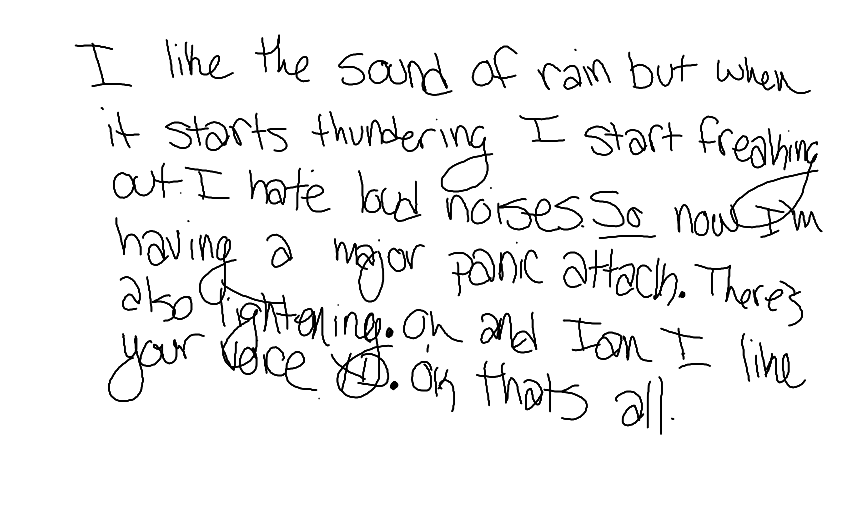 I like the sound of rain but when
it starts thundering I start freaking
out. I hate loud noises. So now I'm
having a major panic attack. There's
also lightening. Oh and Ian I like
your voice XD. Ok thats all.